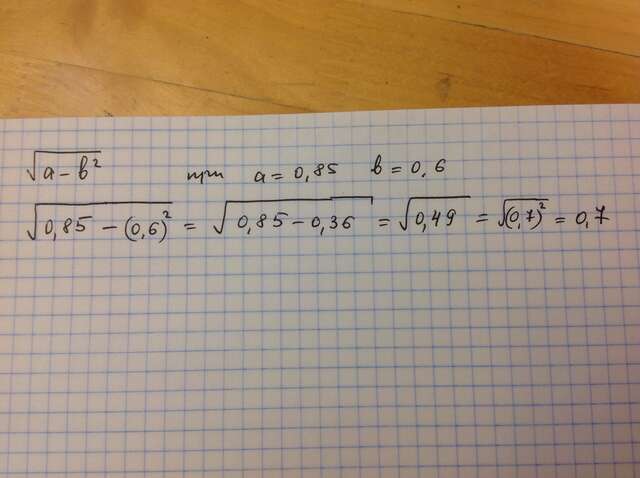 √(a - b²) при a = 0,85 b = 0,6
√(0,85 - (0,6)²) = √(0,85 - 0,36) = √(0,49) = √((0,7)²) = 0,7